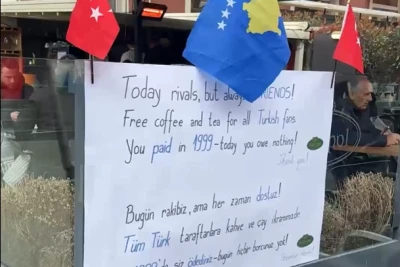 Today rivals, but always FRIENDS!
Free coffee and tea for all Turkish fans
You paid in 1999-today you owe nothing!
Thank you!
Bugün rakibiz, ama her zaman dostuz!
Tüm Türk taraftarlara kahve ve çay ikramımızdır
1999'da siz ödediniz-bugün hiçbir borcunuz yok!